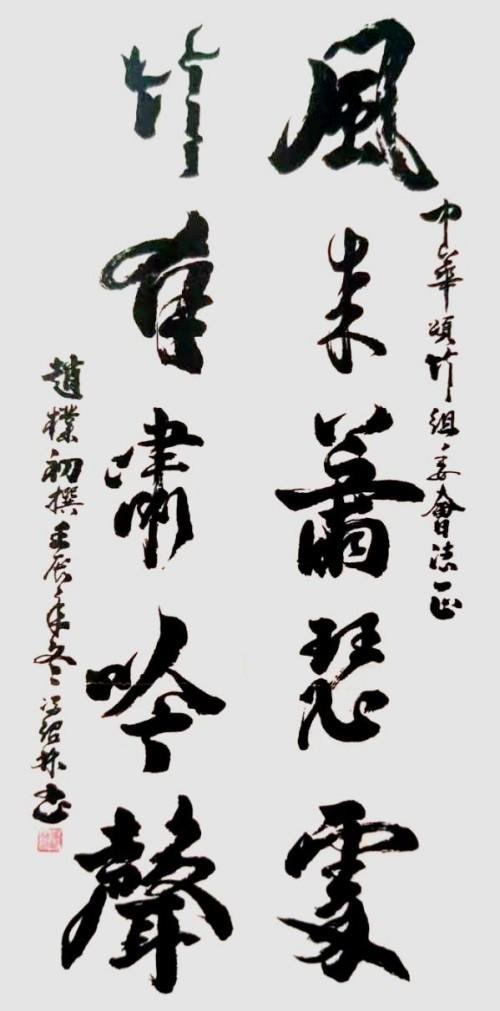 中華頌竹組委會法正
風来蕭瑟處
竹有嘯吟聲
趙樸初撰壬辰年冬紹林書